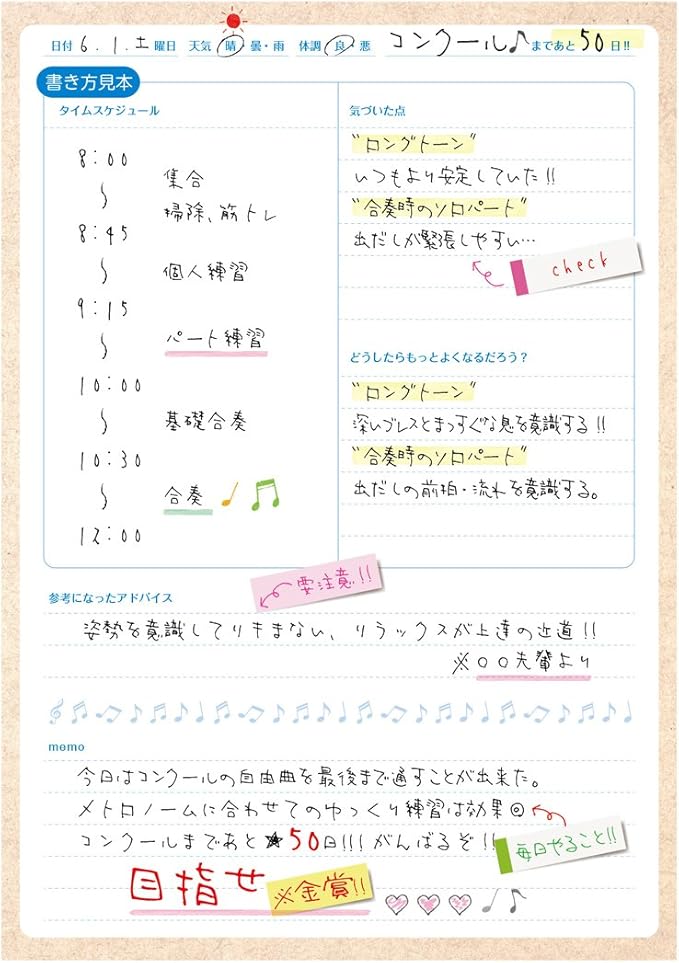 日付 6.1.土曜日 天気 晴・曇・雨 体調 良・悪 コンクール♪まであと50日!!
書き方見本
タイムスケジュール
8:00
〜 集合
掃除、筋トレ
8:45
〜 個人練習
9:15
〜 パート練習
10:00
〜 基礎合奏
10:30
〜 合奏
12:00
気づいた点
"ロングトーン"
いつもより安定していた!!
"合奏時のソロパート"
出だしが緊張しやすい…
check
どうしたらもっとよくなるだろう?
"ロングトーン"
深いブレスとまっすぐな息を意識する!!
"合奏時のソロパート"
出だしの前拍・流れを意識する。
要注意!!
参考になったアドバイス
姿勢を意識してリキまない、リラックスが上達の近道!!
※○○先輩より
memo
今日はコンクールの自由曲を最後まで通すことが出来た。
メトロノームに合わせてのゆっくり練習は効果◎
コンクールまであと★50日!!!がんばるぞ!!
毎日やること!!
目指せ ※金賞!!